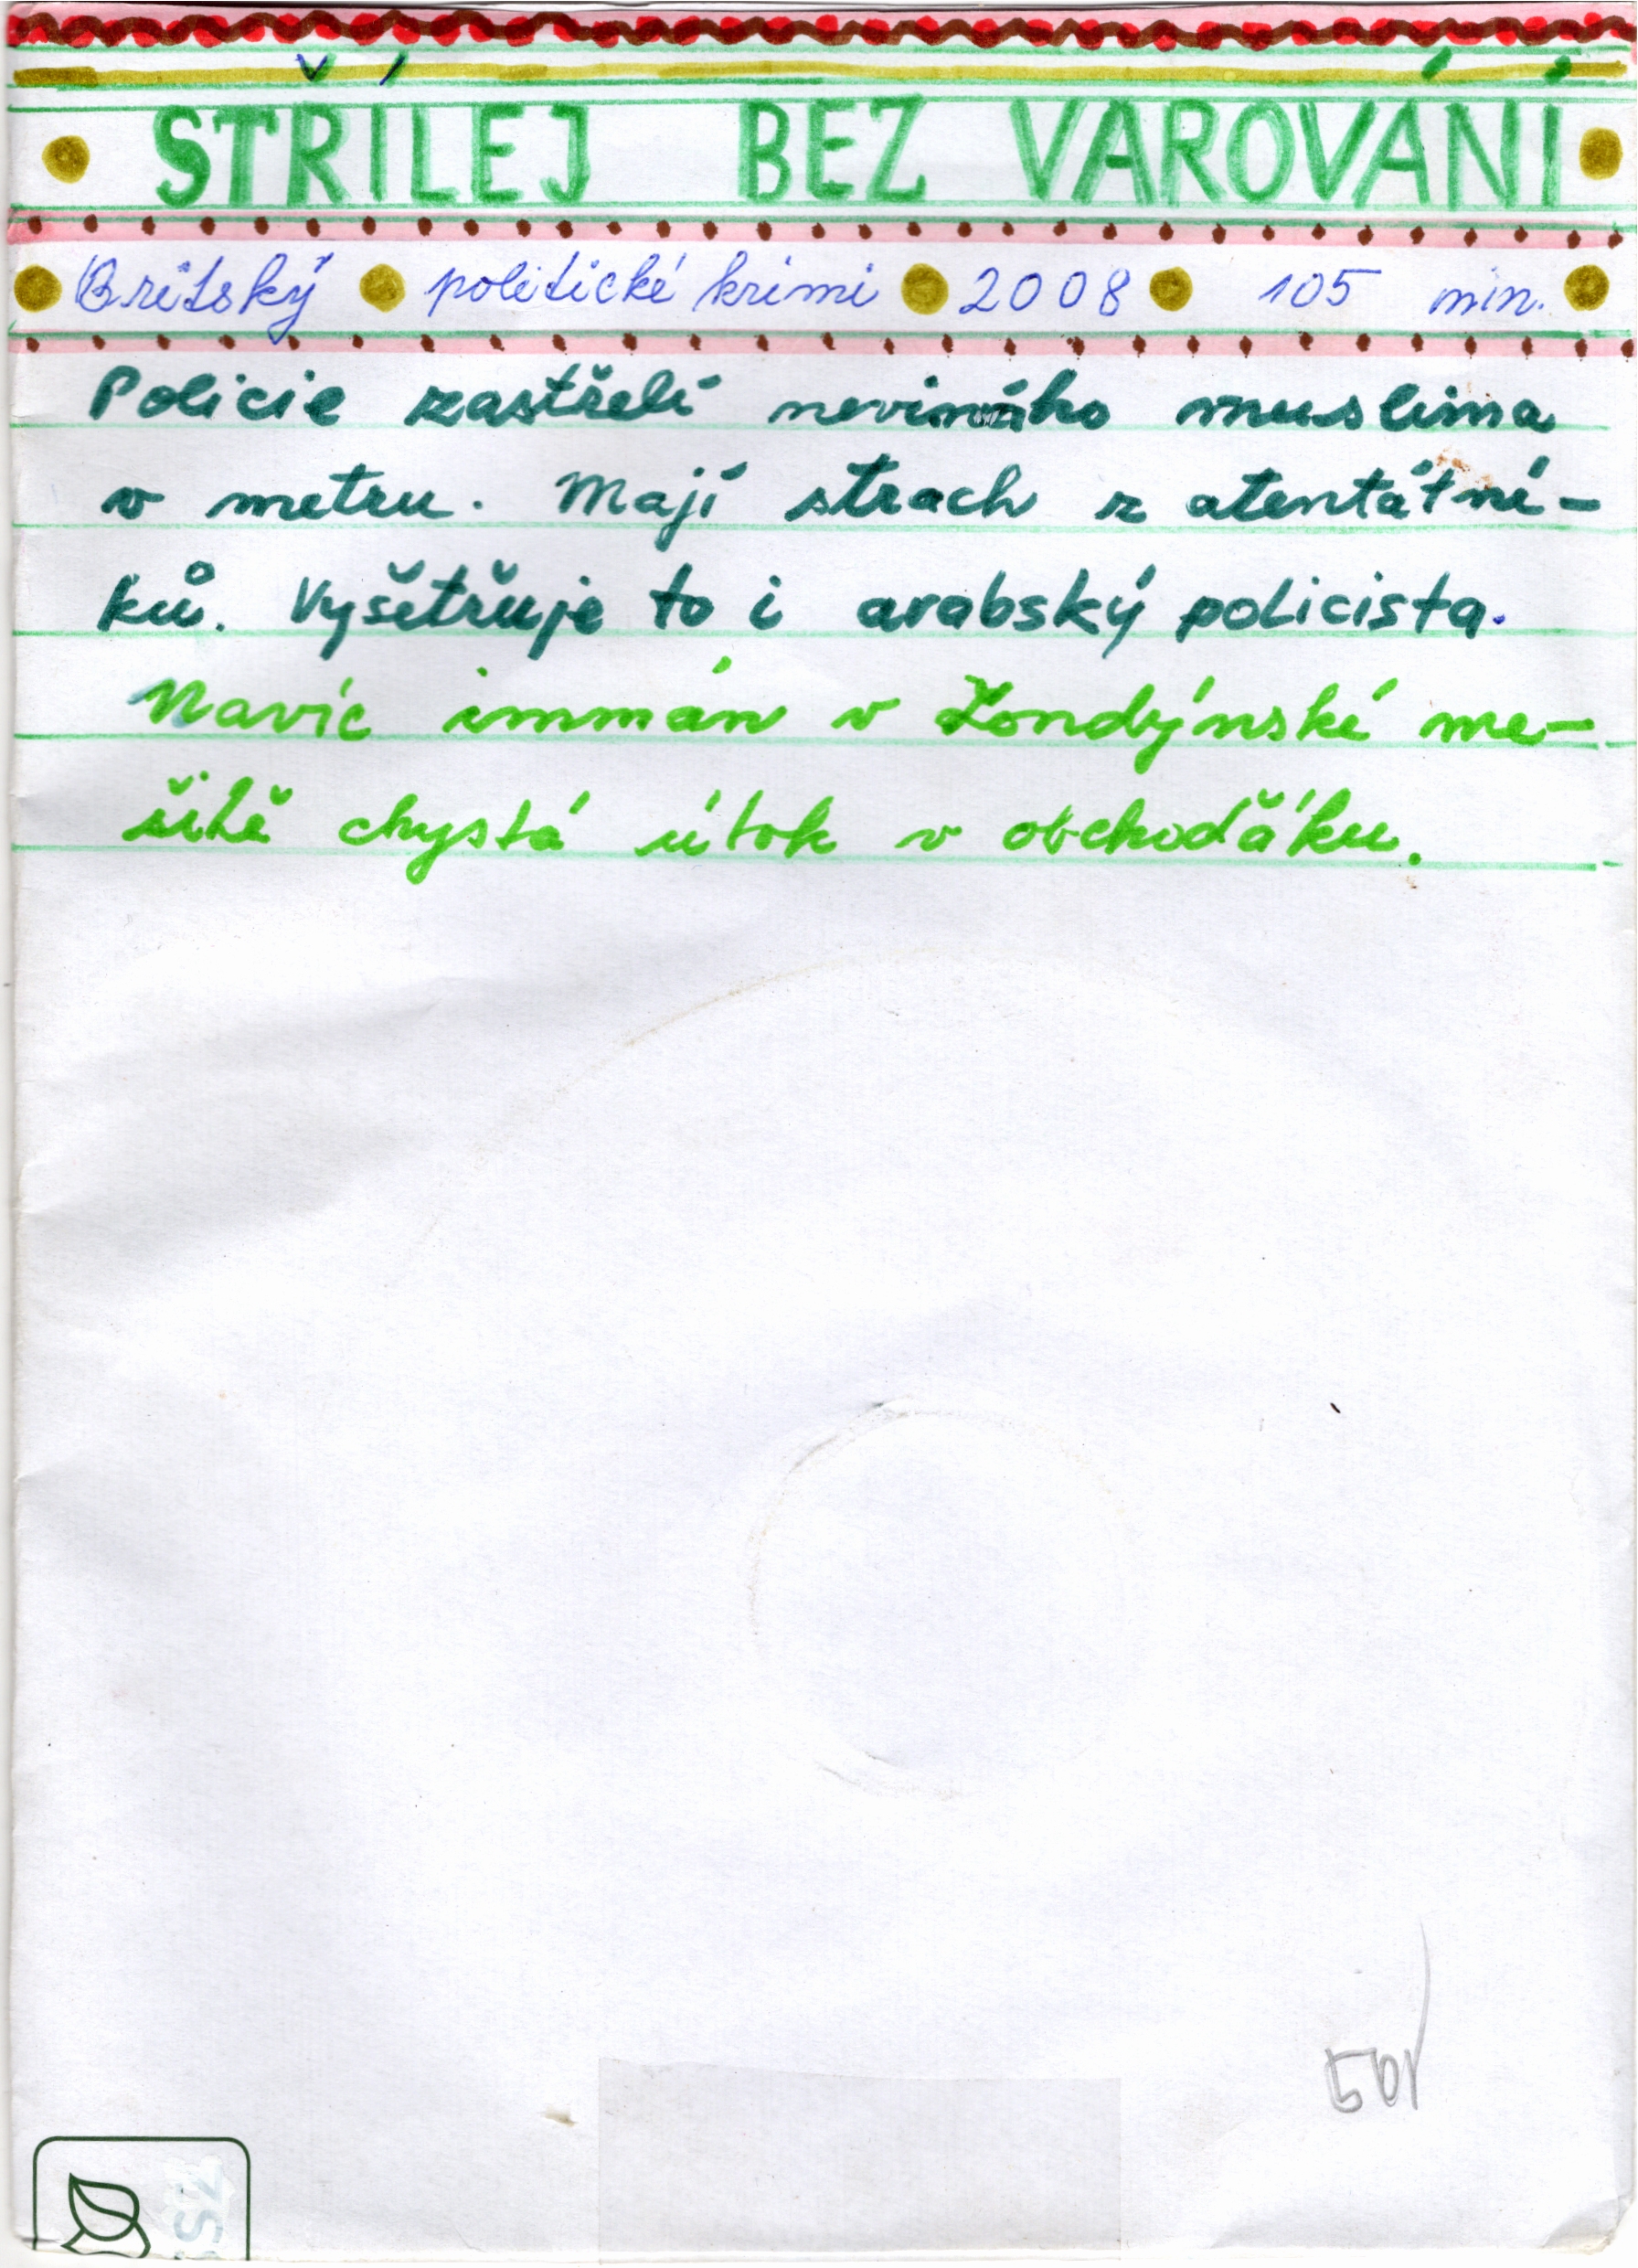 STŘÍLEJ BEZ VAROVÁNÍ
Britský politické krimi 2008 105 min.
Policie zastřelí nevinného muslima
v metru. Mají strach z atentátní-
ků. Vyšetřuje to i arabský policista.
Navíc immán v Londýnské me-
šitě chystá útok v obchoďáku.